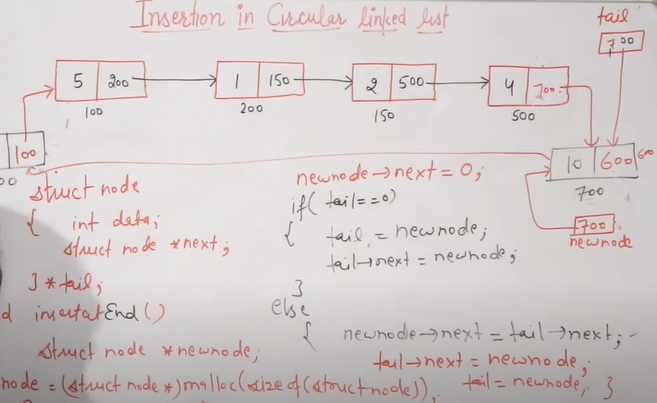 Insertion in Circular linked list
tail
700
5 200
1 150
2 500
4 700
100
200
150
500
100
10 600 600
700
700
newnode
struct node
{ int data;
struct node *next;
} *tail;
d insertatEnd()
struct node *newnode;
node = (struct node *) malloc(size of (struct node)),
newnode→next = 0;
if( tail==0)
{ tail = newnode;
tail→next = newnode;
}
else
{ newnode→next = tail→next;
tail→next = newnode;
tail = newnode; }